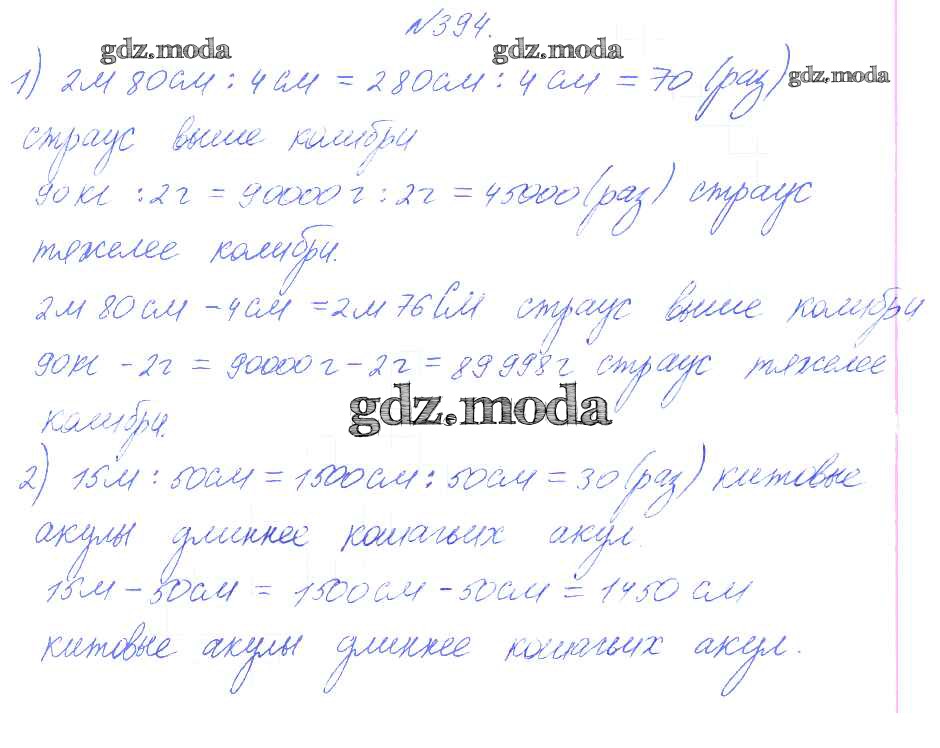 №394.
gdz.moda gdz.moda
1) 2м 80см : 4см = 280см : 4см = 70 (раз) gdz.moda
страус выше колибри
90кг : 2г = 90000г : 2г = 45000 (раз) страус
тяжелее колибри.
2м 80см - 4см = 2м 76см страус выше колибри
90кг - 2г = 90000г - 2г = 89998г страус тяжелее
gdz.moda
колибри.
2) 15м : 50см = 1500см : 50см = 30 (раз) китовые
акулы длиннее кошачьих акул.
15м - 50см = 1500см - 50см = 1450 см
китовые акулы длиннее кошачьих акул.